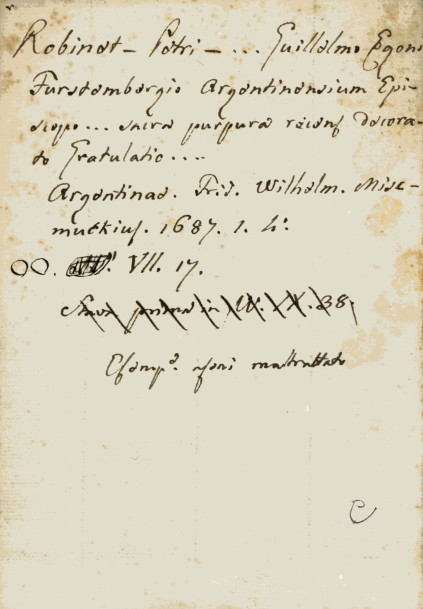 Robinet - Petri - ... Guillelmo Egoni
Furstembergio Argentinensium Epi-
scopo ... sacra purpura recens decora-
to Gratulatio ....
Argentinae. Frid. Wilhelm. Misc-
muckius. 1687. 1. 4.
OO. VII. 17.
prima in X. 38.
Esemp.e assai maltrattato
C